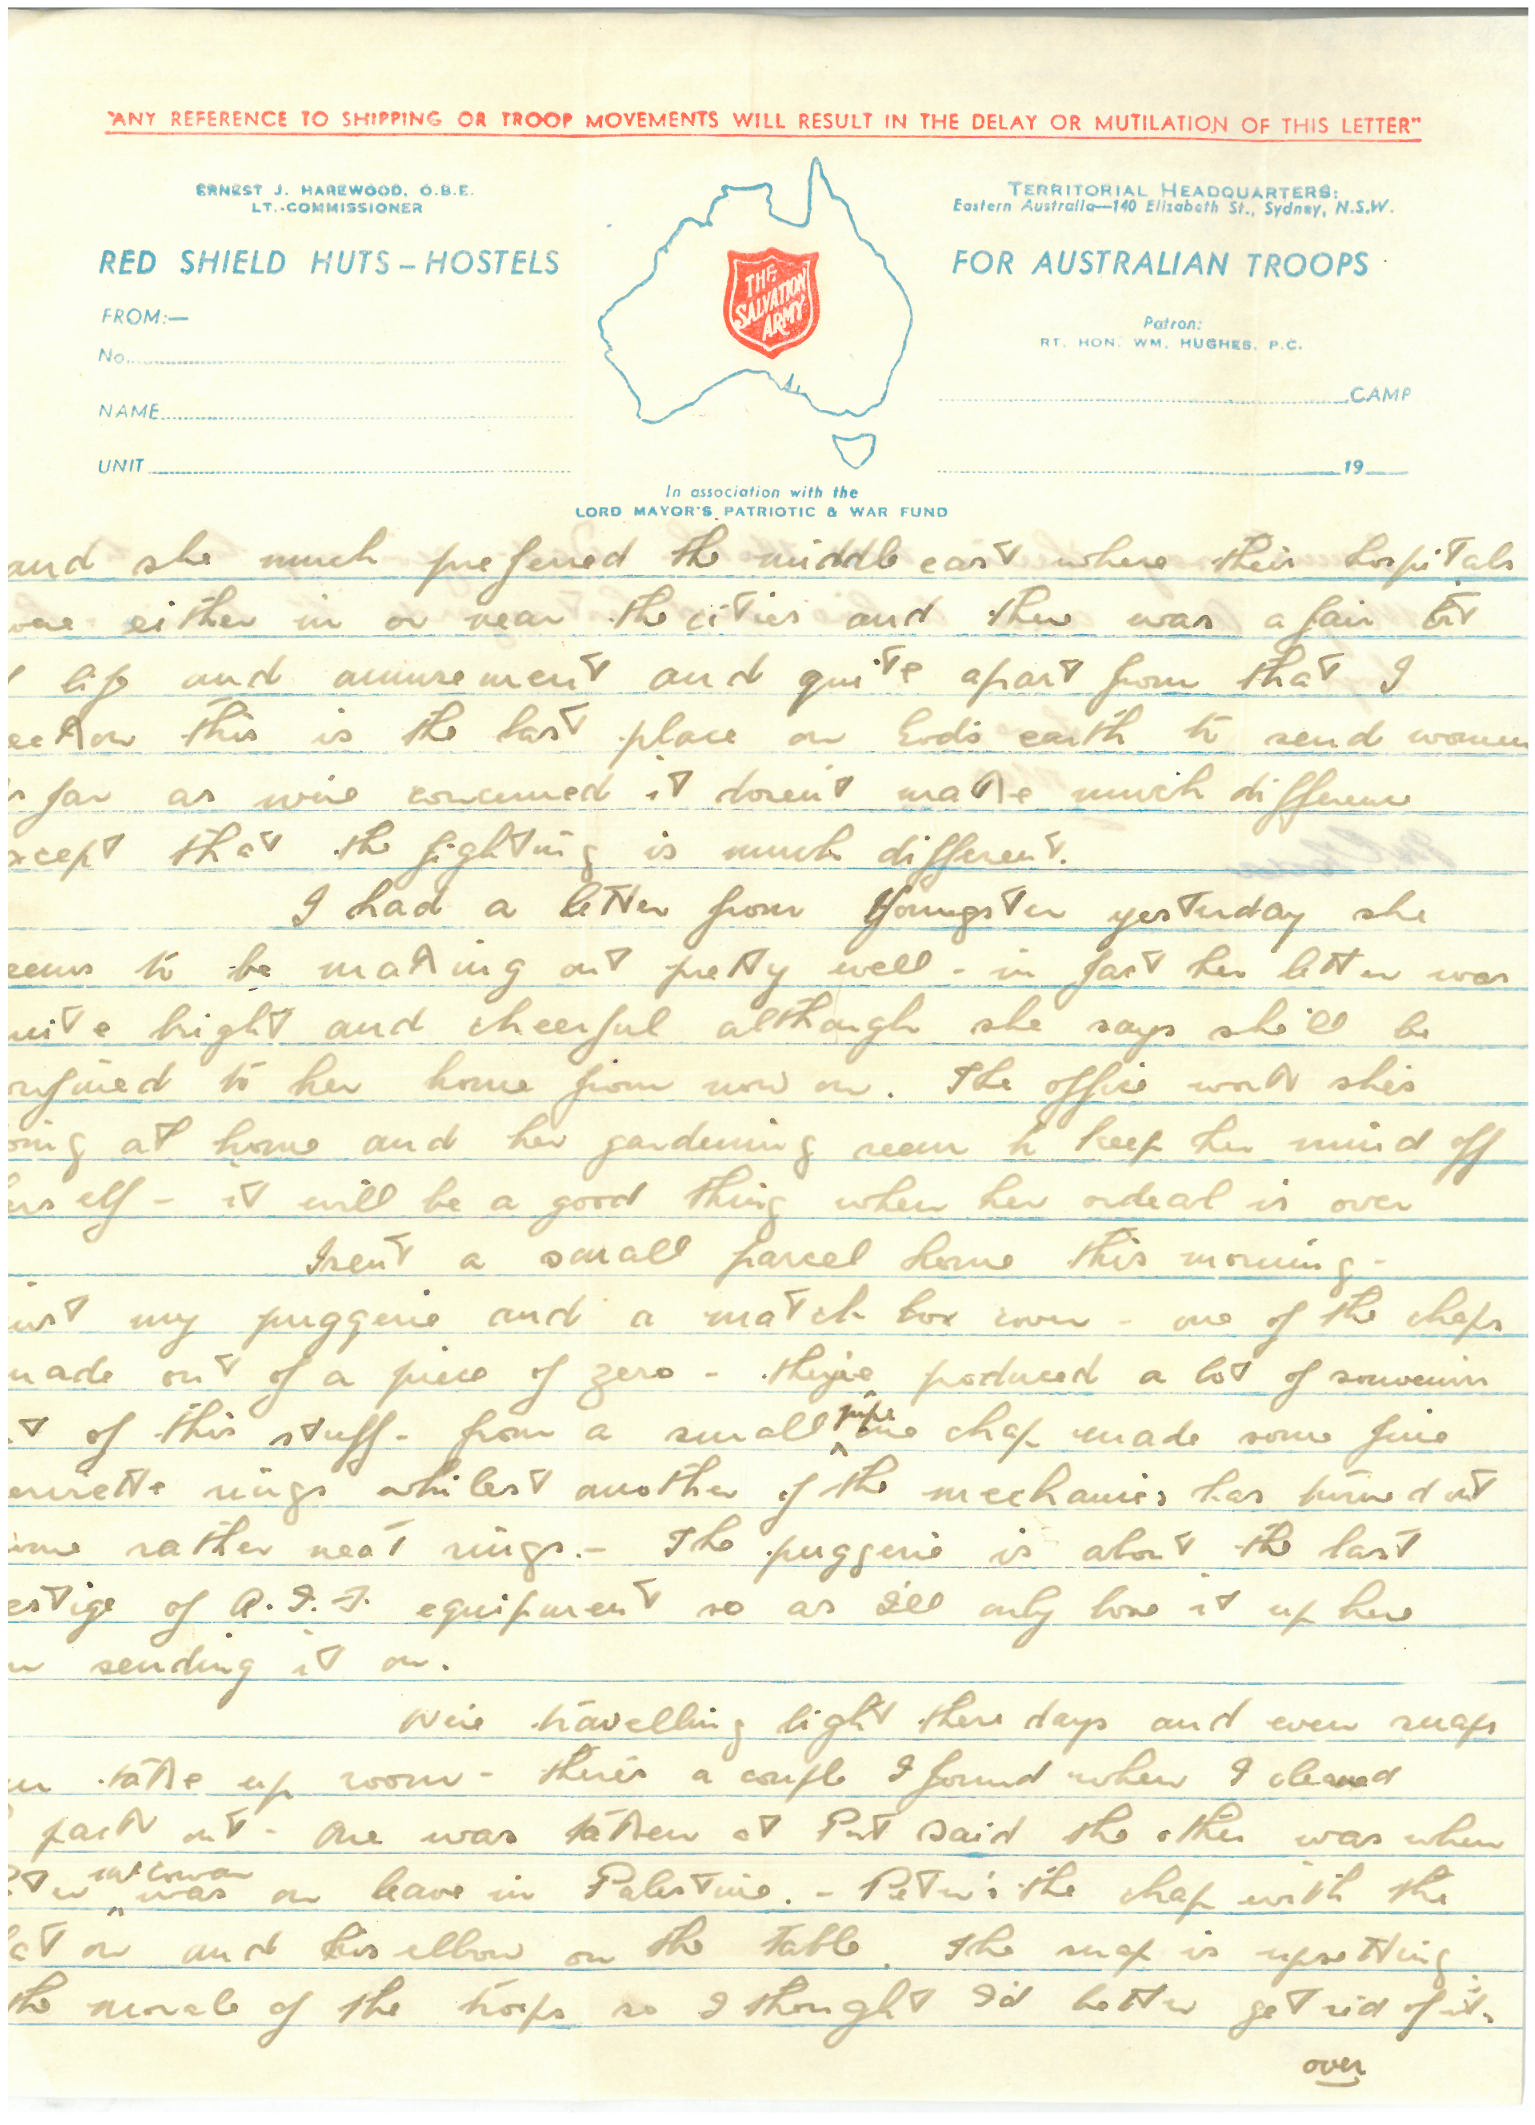 "ANY REFERENCE TO SHIPPING OR TROOP MOVEMENTS WILL RESULT IN THE DELAY OR MUTILATION OF THIS LETTER"
ERNEST J. HAREWOOD, O.B.E.
LT.-COMMISSIONER
TERRITORIAL HEADQUARTERS:
Eastern Australia—140 Elizabeth St., Sydney, N.S.W.
RED SHIELD HUTS – HOSTELS
FOR AUSTRALIAN TROOPS
THE
SALVATION
ARMY
FROM:—
No.
NAME
UNIT
Patron:
RT. HON. WM. HUGHES, P.C.
CAMP
19
In association with the
LORD MAYOR'S PATRIOTIC & WAR FUND
and she much preferred the middle east where their hospitals
were either in or near the cities and there was a fair bit
life and amusement and quite apart from that I
reckon this is the last place on God's earth to send women
s far as we're concerned it doesn't make much difference
xcept that the fighting is much different.
I had a letter from Youngster yesterday she
eems to be making out pretty well - in fact her letter was
uite bright and cheerful although she says she'll be
onfined to her home from now on. The office work she's
oing at home and her gardening seem to keep her mind off
erself - it will be a good thing when her ordeal is over
I sent a small parcel home this morning -
ust my puggerie and a match box cover - one of the chaps
made out of a piece of zero - they've produced a lot of souvenirs
t of this stuff - from a small pipe one chap made some fine
erviette rings whilest another of the mechanics has turned out
ome rather neat rings. - The puggerie is about the last
estige of A.I.F. equipment so as I'll only lose it up here
m sending it on.
We're travelling light these days and even snaps
an take up room - there's a couple I found when I cleaned
pack out - One was taken at Port Said the other was when
eter McCowan was on leave in Palestine. - Peter's the chap with the
at on and his elbow on the table. The snap is upsetting
the morale of the troops so I thought I'd better get rid of it.
over